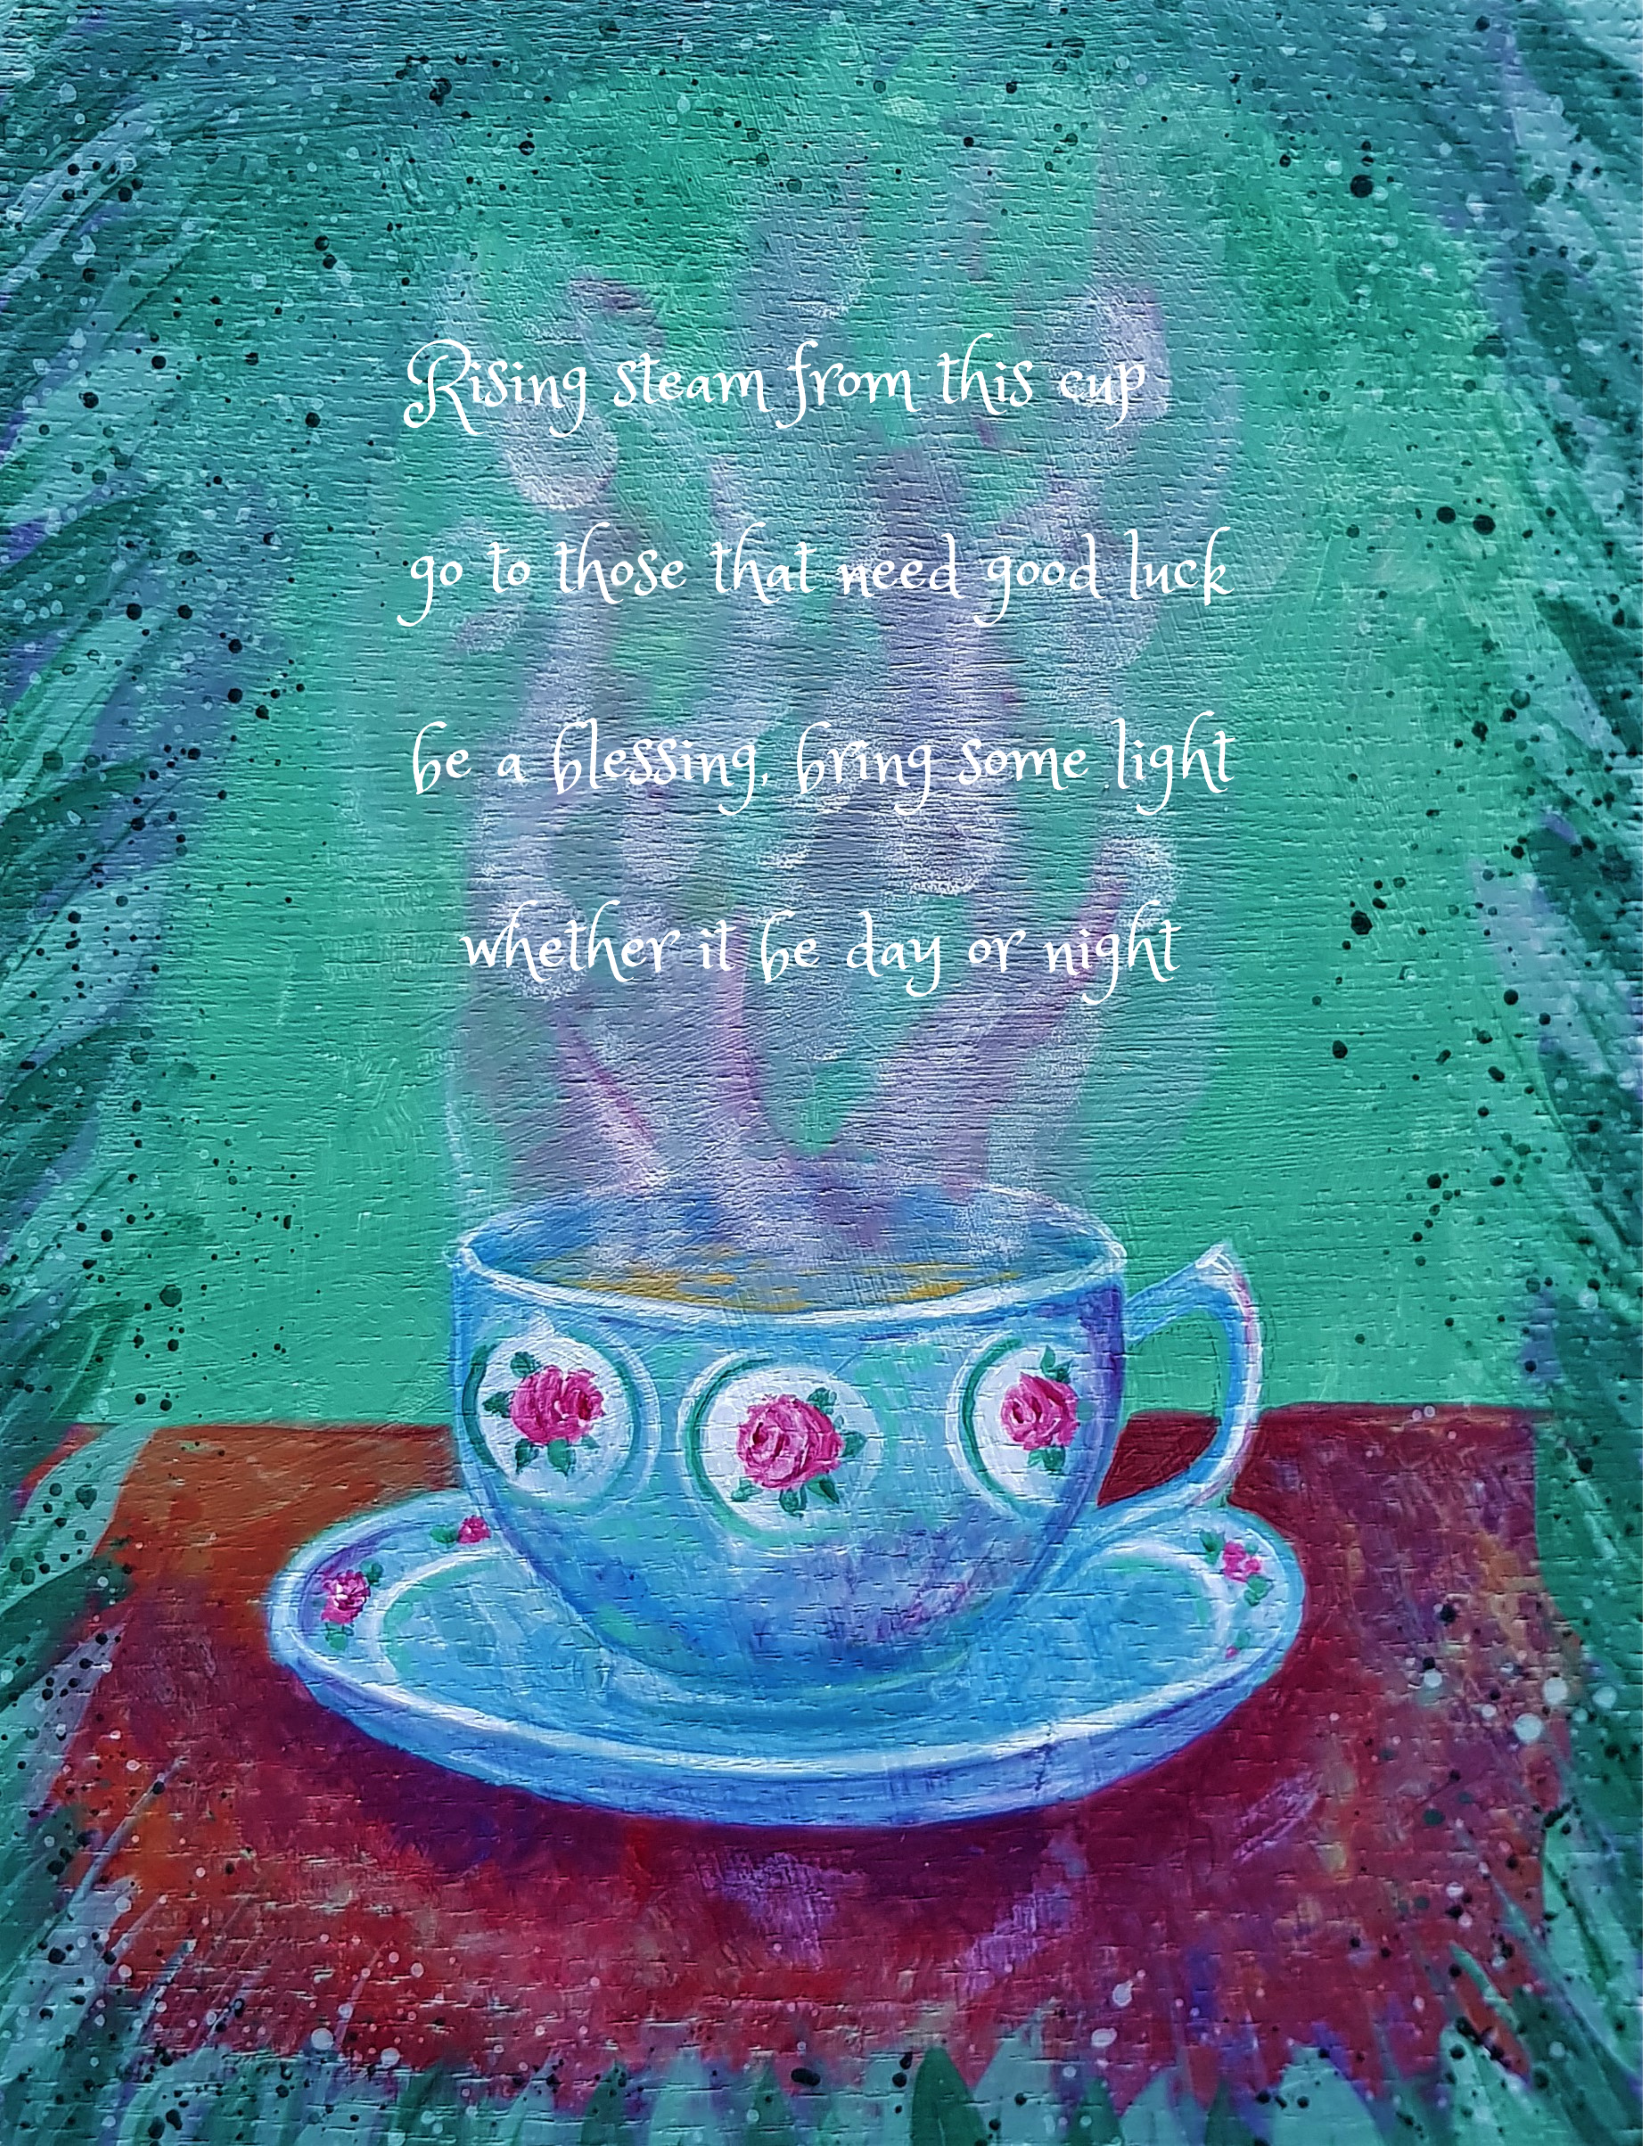 Rising steam from this cup
go to those that need good luck
be a blessing, bring some light
whether it be day or night